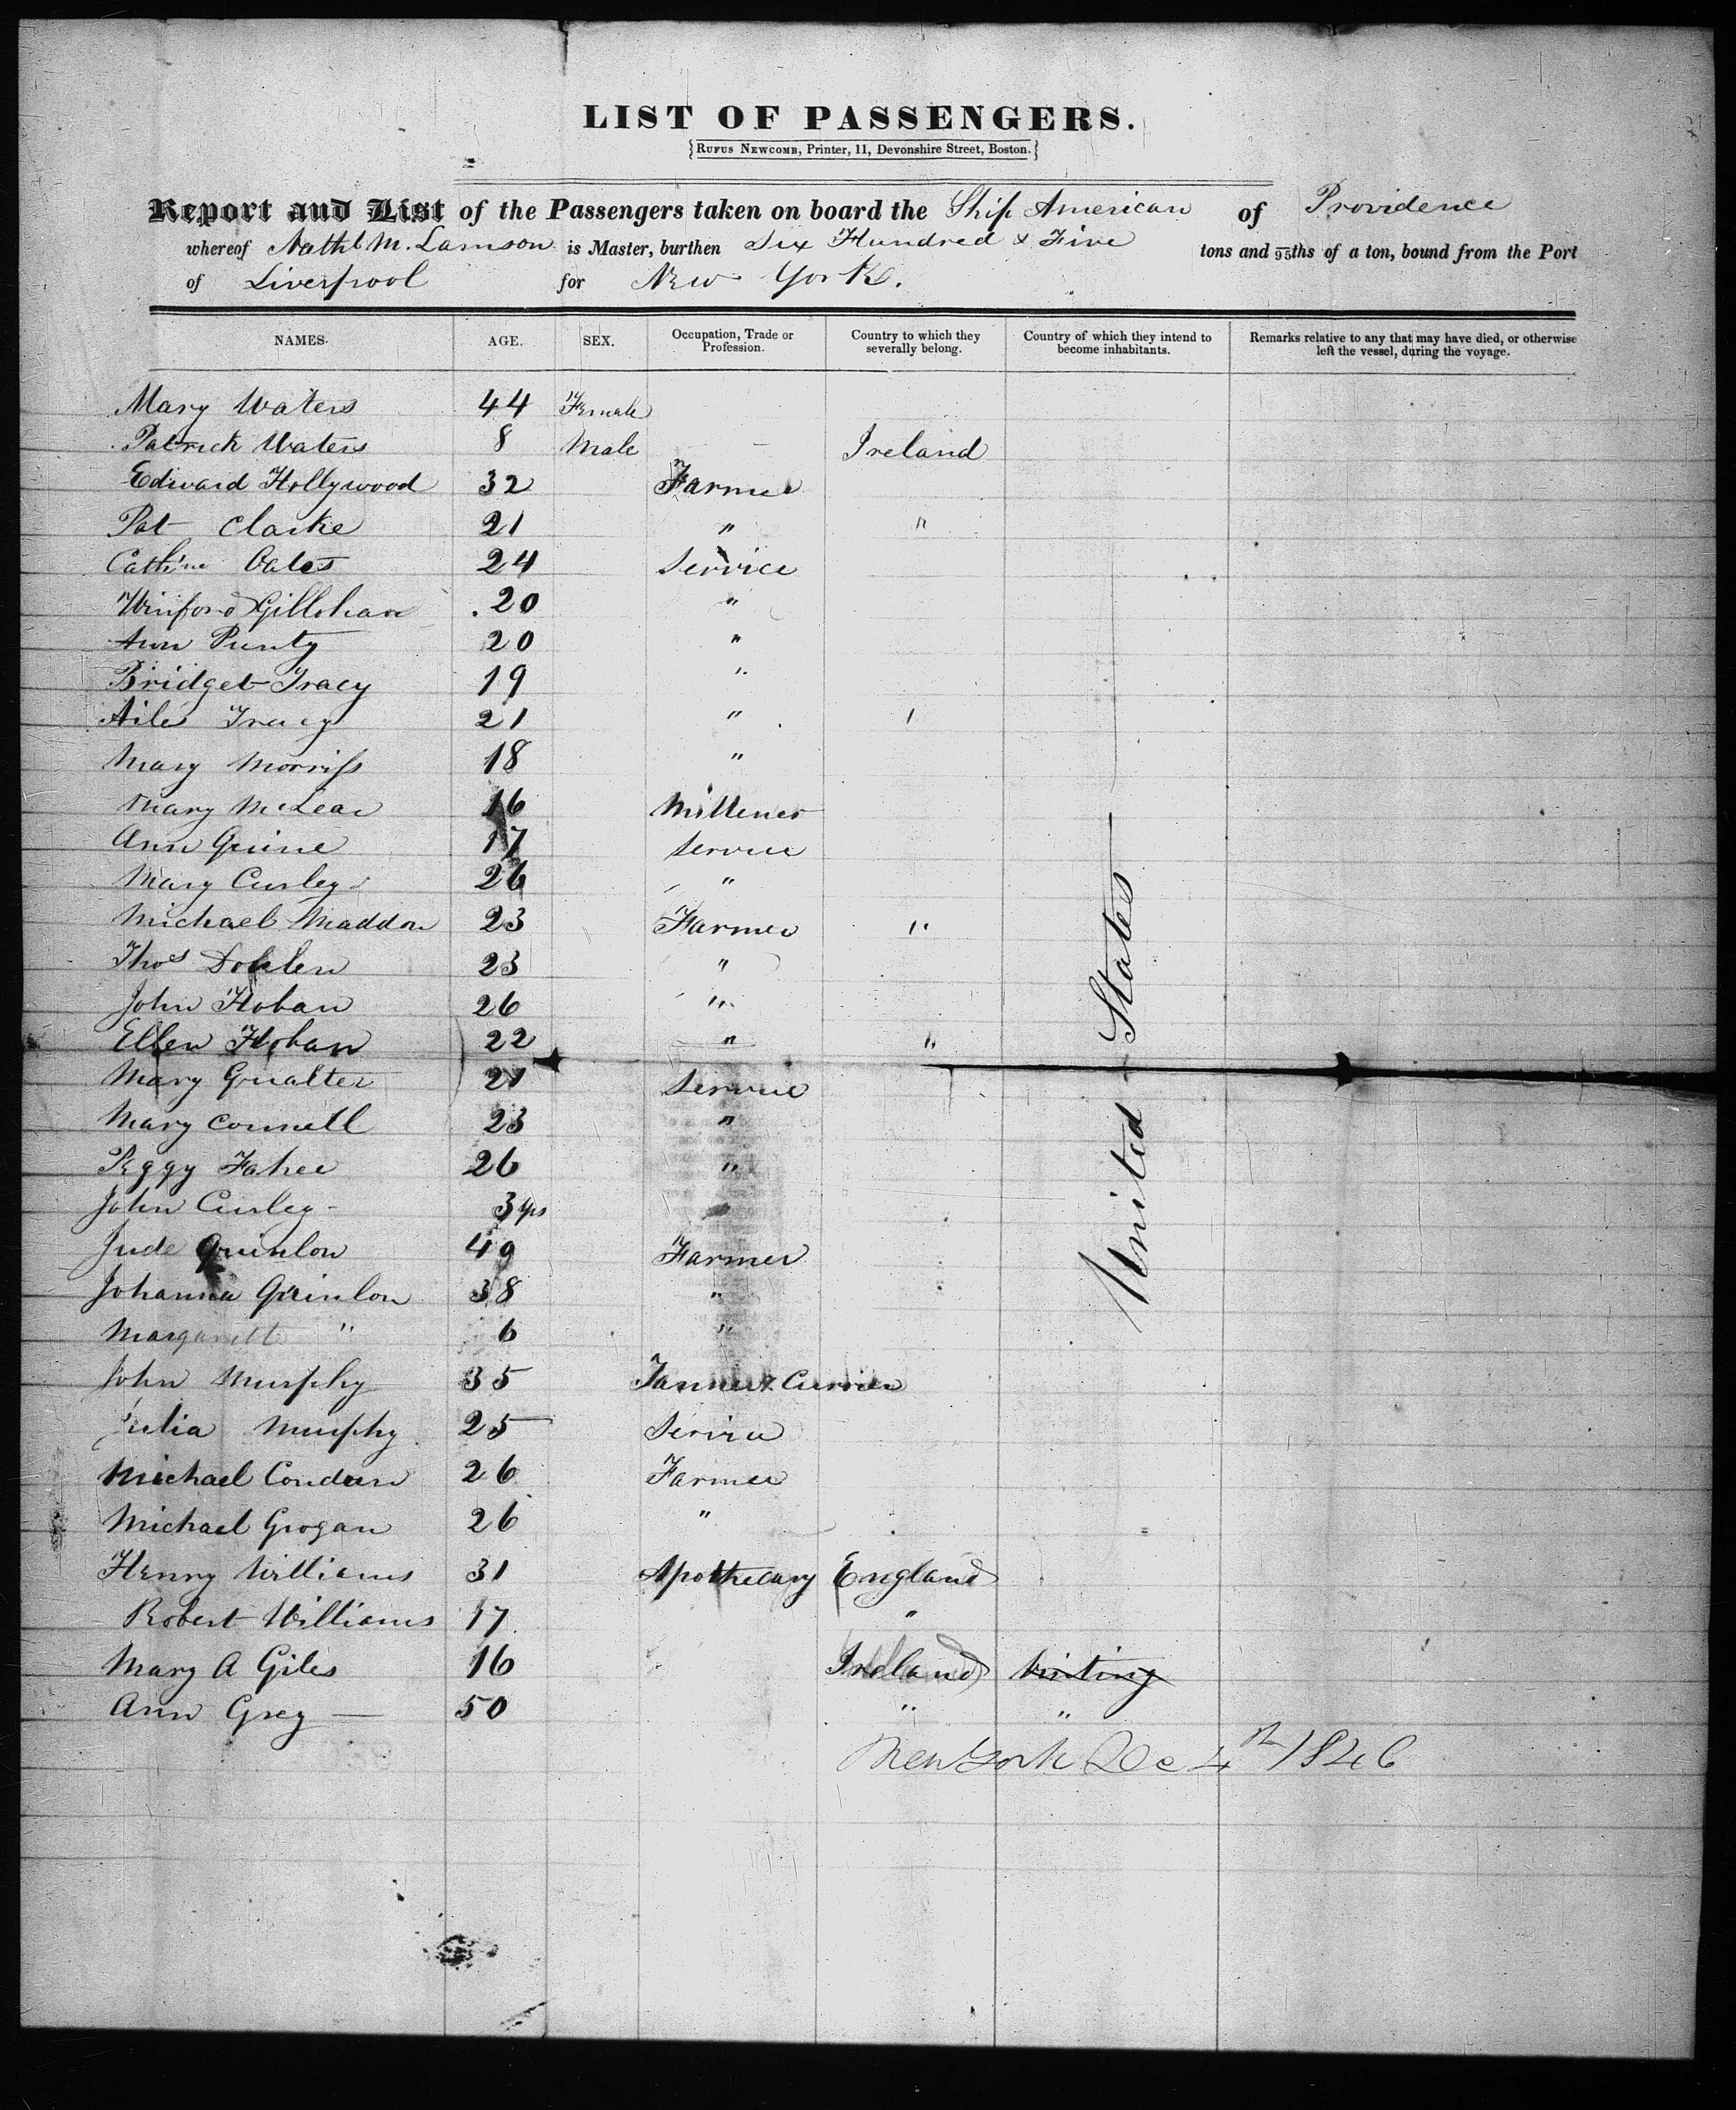 LIST OF PASSENGERS.
{RUFUS NEWCOMB, Printer, 11, Devonshire Street, Boston.}
Report and List of the Passengers taken on board the Ship American of Providence
whereof Nathl M. Lamson is Master, burthen Six Hundred & Five tons and 95ths of a ton, bound from the Port
of Liverpool for New York.
NAMES. AGE. SEX. Occupation, Trade or Profession. Country to which they severally belong. Country of which they intend to become inhabitants. Remarks relative to any that may have died, or otherwise left the vessel, during the voyage.
Mary Waters 44 Female
Patrick Waters 8 Male Ireland
Edward Hollywood 32 Farmer
Pat Clarke 21 " "
Oates 24 Service
Winford Gillohan 20 "
Ann Punty 20 "
Bridget Tracy 19 "
Tracy 21 "
Mary Morriss 18 "
Mary McLear 16 Millener
Ann Quine 17 Service
Mary Curley 26 "
Michael Maddon 23 Farmer "
Thos 23 "
John Hoban 26 "
Ellen Hoban 22 " "
Mary Gualter 21 Service
Mary Connell 23 "
Peggy Fahee 26 "
John Curley 3 yrs
Jude Quinlon 49 Farmer
Johanna Quinlon 38 "
Margarett " 6 "
John Murphy 35 Tanner & Currier
Julia Murphy 25 Service
Michael Condun 26 Farmer
Michael Grogan 26 "
Henry Williams 31 Apothecary England
Robert Williams 17 "
Mary A Giles 16 Ireland Visiting
Ann Grey 50 " "
United States
New York Dec 4th 1846